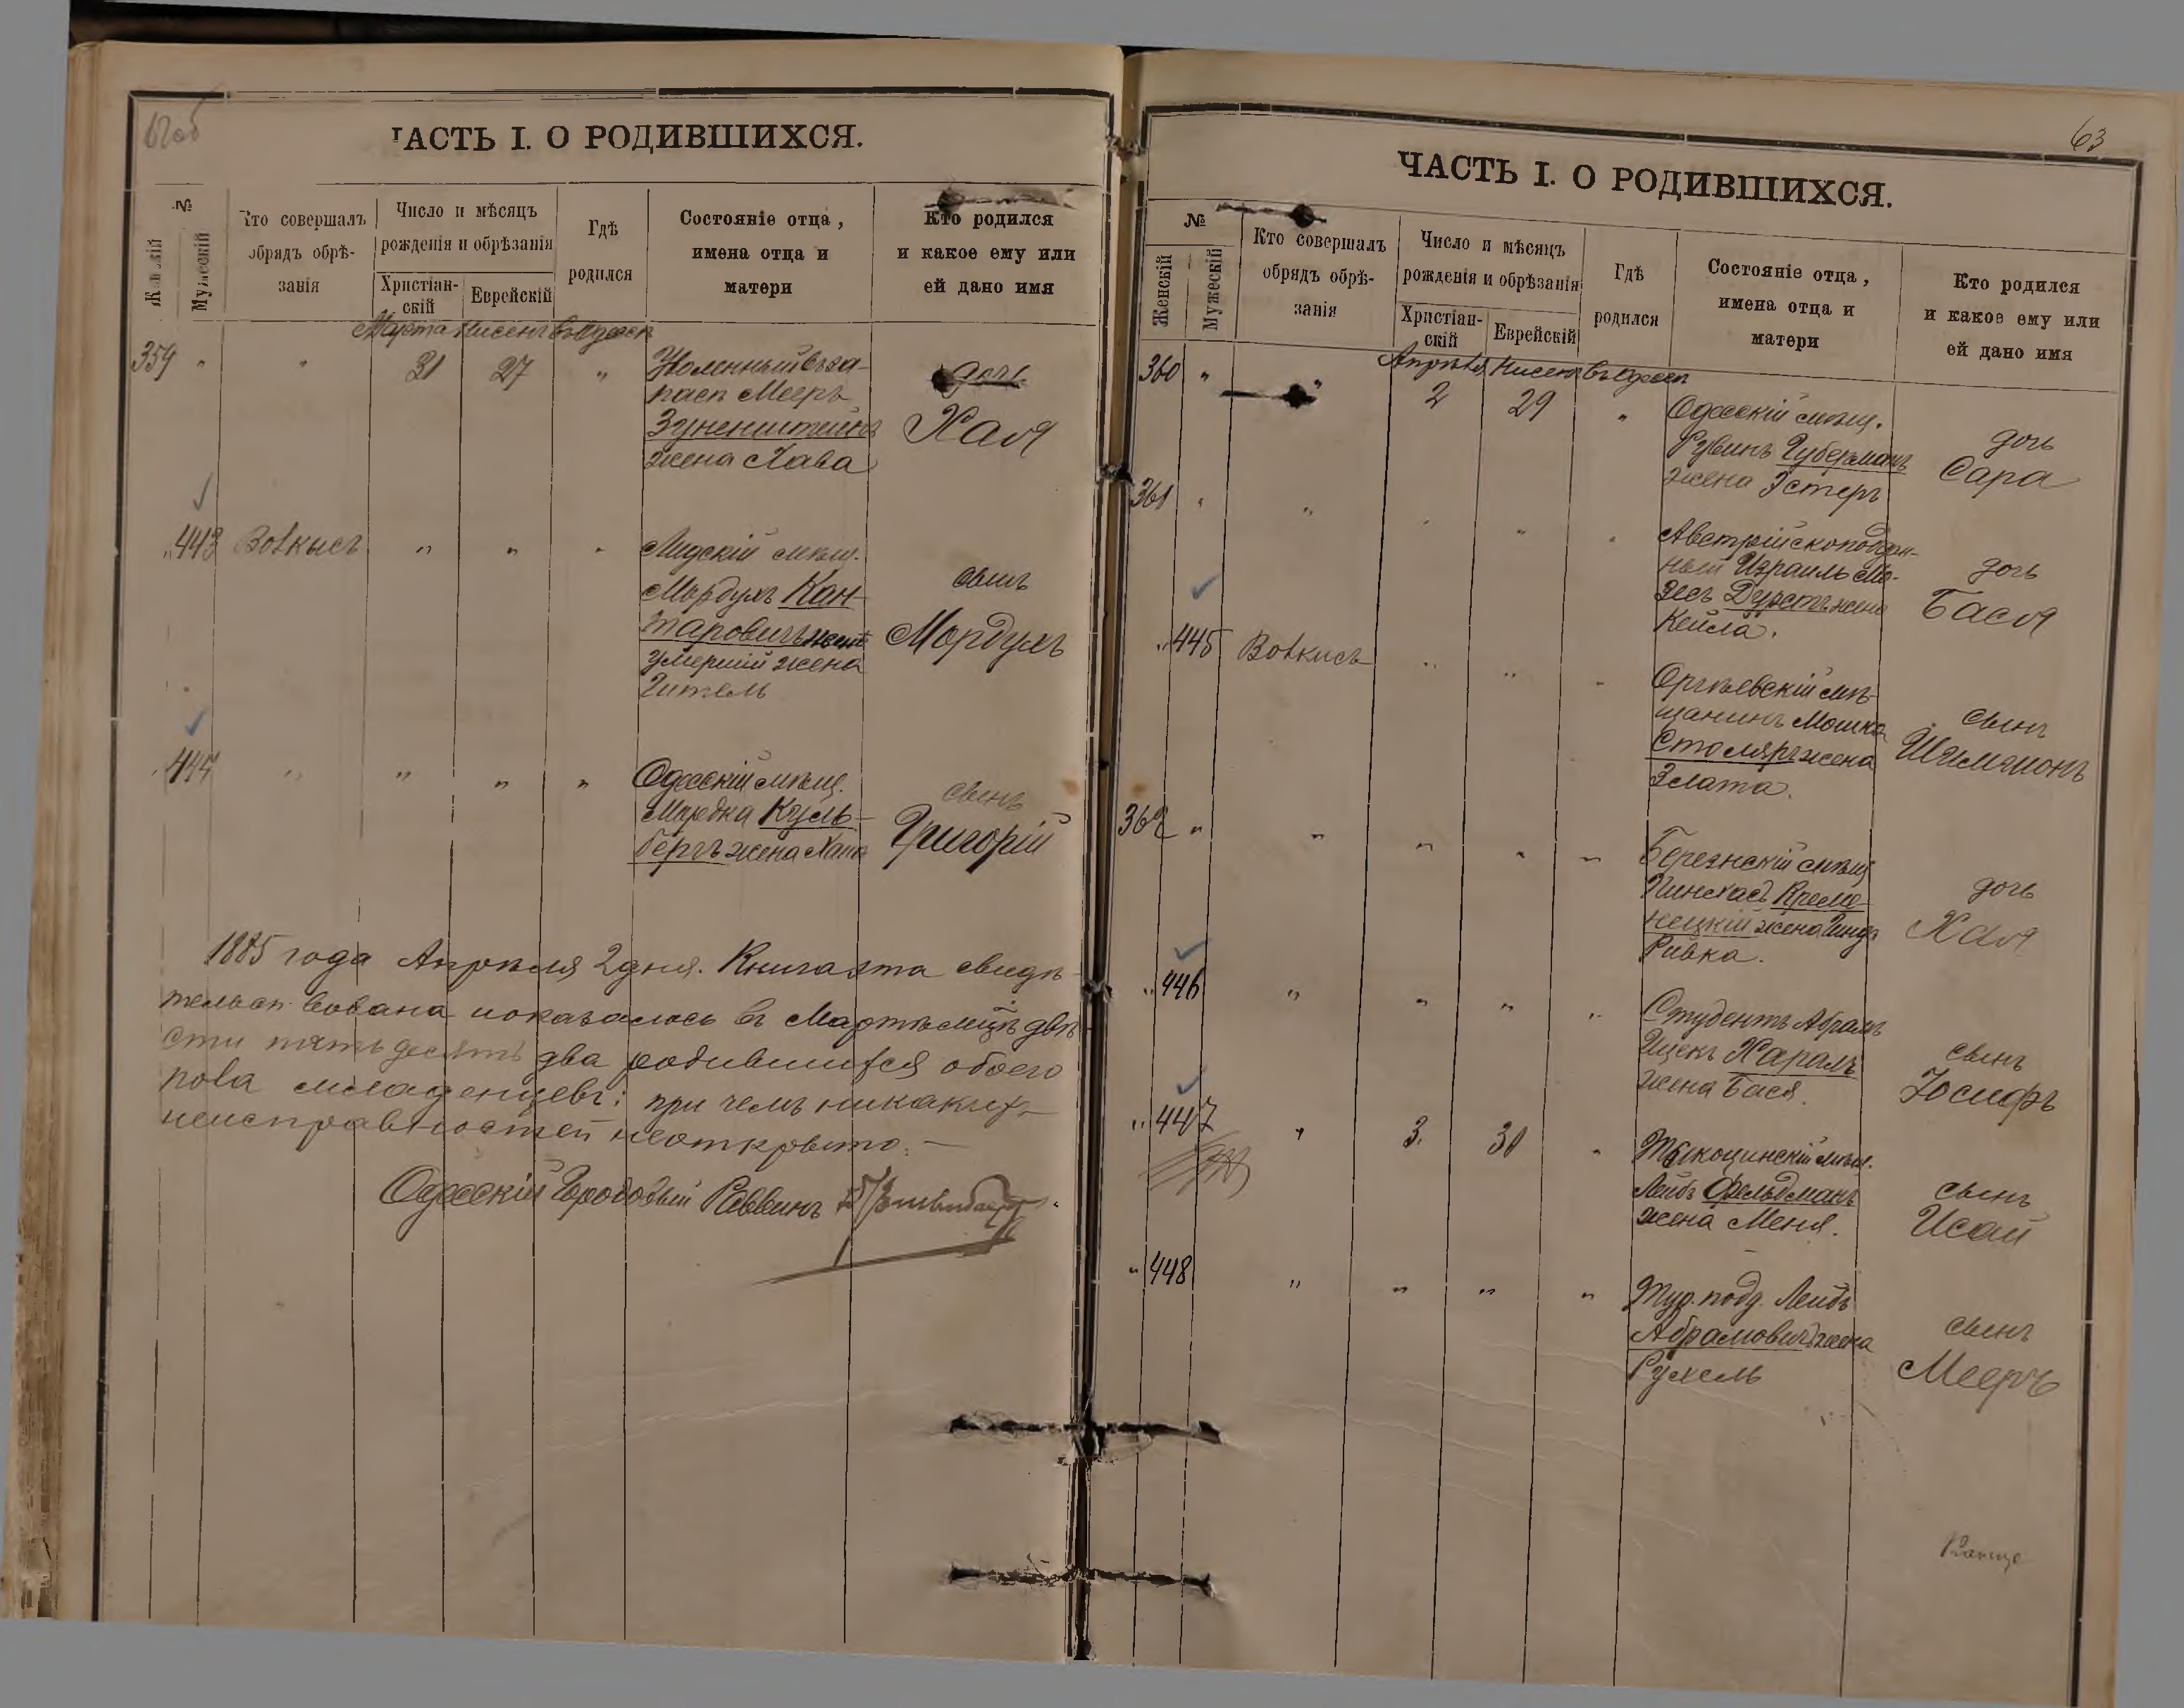 62об
ЧАСТЬ I. О РОДИВШИХСЯ.
№
Женскій
Мужескій
Кто совершалъ
обрядъ обрѣ-
занія
Число и мѣсяцъ
рожденія и обрѣзанія
Христіан-
скій
Еврейскій
Гдѣ
родился
Состояніе отца,
имена отца и
матери
Кто родился
и какое ему или
ей дано имя
Марта Нисенъ въ Одессѣ
359 " " 31 27 "
Уволенный въ за-
пасъ Мееръ
Зуненштейнъ
жена Хава
дочь
Хая
" 443 Волкысъ " " "
Лидскій мѣщ.
Мордухъ Кан-
таровичъ
умершій жена
Гитель
сынъ
Мордухъ
" 444 " " " "
Одесскій мѣщ.
Мордка Куль-
бергъ жена Хана
сынъ
Григорій
1885 года Апрѣля 2 дня. Книга эта свидѣ-
тельствована и оказалось въ Мартѣ мцѣ двѣ-
сти пятьдесятъ два родившихся обоего
пола младенцевъ; при чемъ никакихъ
неисправностей не открыто. —
Одесскій Городовый Раввинъ
63
ЧАСТЬ I. О РОДИВШИХСЯ.
№
Женскій
Мужескій
Кто совершалъ
обрядъ обрѣ-
занія
Число и мѣсяцъ
рожденія и обрѣзанія
Христіан-
скій
Еврейскій
Гдѣ
родился
Состояніе отца,
имена отца и
матери
Кто родился
и какое ему или
ей дано имя
Апрѣля Нисенъ въ Одессѣ
360 " " 2 29 "
Одесскій мѣщ.
Рувинъ Губерманъ
жена Эстеръ
дочь
Сара
361 " " " " "
Австрійскоподдан-
ный Израиль Мо-
зесъ Дурстъ жена
Кейла.
дочь
Бася
" 445 Волкисъ " " "
Оргѣевскій мѣ-
щанинъ Мошка
Столяръ жена
Злата.
сынъ
Шимшонъ
362 " " " " "
Березнскій мѣщ
Пинхасъ Креме-
нецкій жена Гинда
Ривка.
дочь
Хая
" 446 " " " "
Студентъ Абрамъ
Ицекъ Харапъ
жена Бася.
сынъ
Іосифъ
" 447 " 3. 30 "
Тыкоцинскій мѣщ.
Лейбъ Фельдманъ
жена Меня.
сынъ
Исай
" 448 " " " "
Тур. подд. Лейбъ
Абрамовичъ жена
Рухель
сынъ
Мееръ